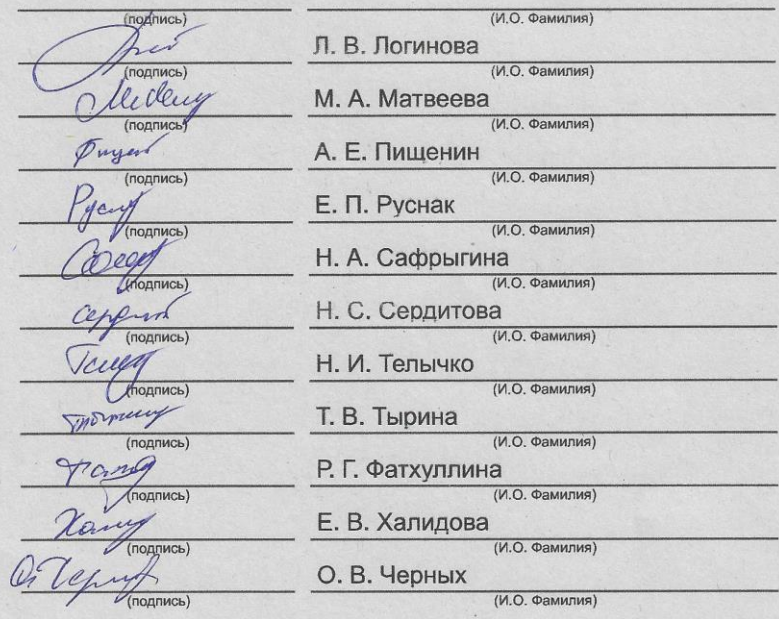 (подпись) (И.О. Фамилия)
Л. В. Логинова
(подпись) (И.О. Фамилия)
М. А. Матвеева
(подпись) (И.О. Фамилия)
А. Е. Пищенин
(подпись) (И.О. Фамилия)
Е. П. Руснак
(подпись) (И.О. Фамилия)
Н. А. Сафрыгина
(подпись) (И.О. Фамилия)
Н. С. Сердитова
(подпись) (И.О. Фамилия)
Н. И. Телычко
(подпись) (И.О. Фамилия)
Т. В. Тырина
(подпись) (И.О. Фамилия)
Р. Г. Фатхуллина
(подпись) (И.О. Фамилия)
Е. В. Халидова
(подпись) (И.О. Фамилия)
О. В. Черных
(подпись) (И.О. Фамилия)